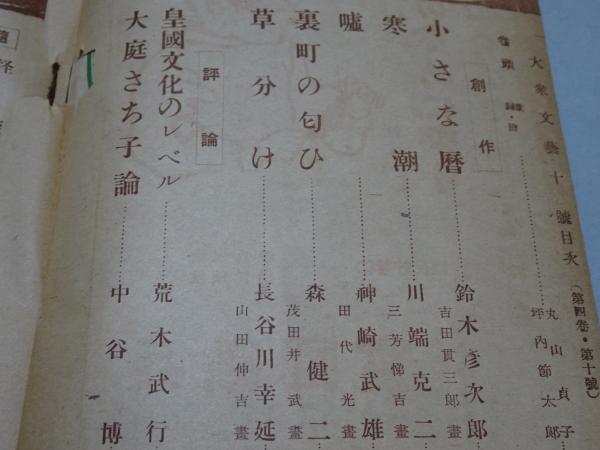 大衆文藝十號目次(第四卷・第十號)
卷頭
丸山貞子
坪内節太郎
創作
小さな暦……鈴木彦次郎
吉田貫三郎畫
寒潮……川端克二
三芳悌吉畫
嘘……神崎武雄
田代光畫
裏町の匂ひ……森健二
茂田井武畫
草分け……長谷川幸延
山田伸吉畫
評論
皇國文化のレベル……荒木武行
大庭さち子論……中谷博
隨